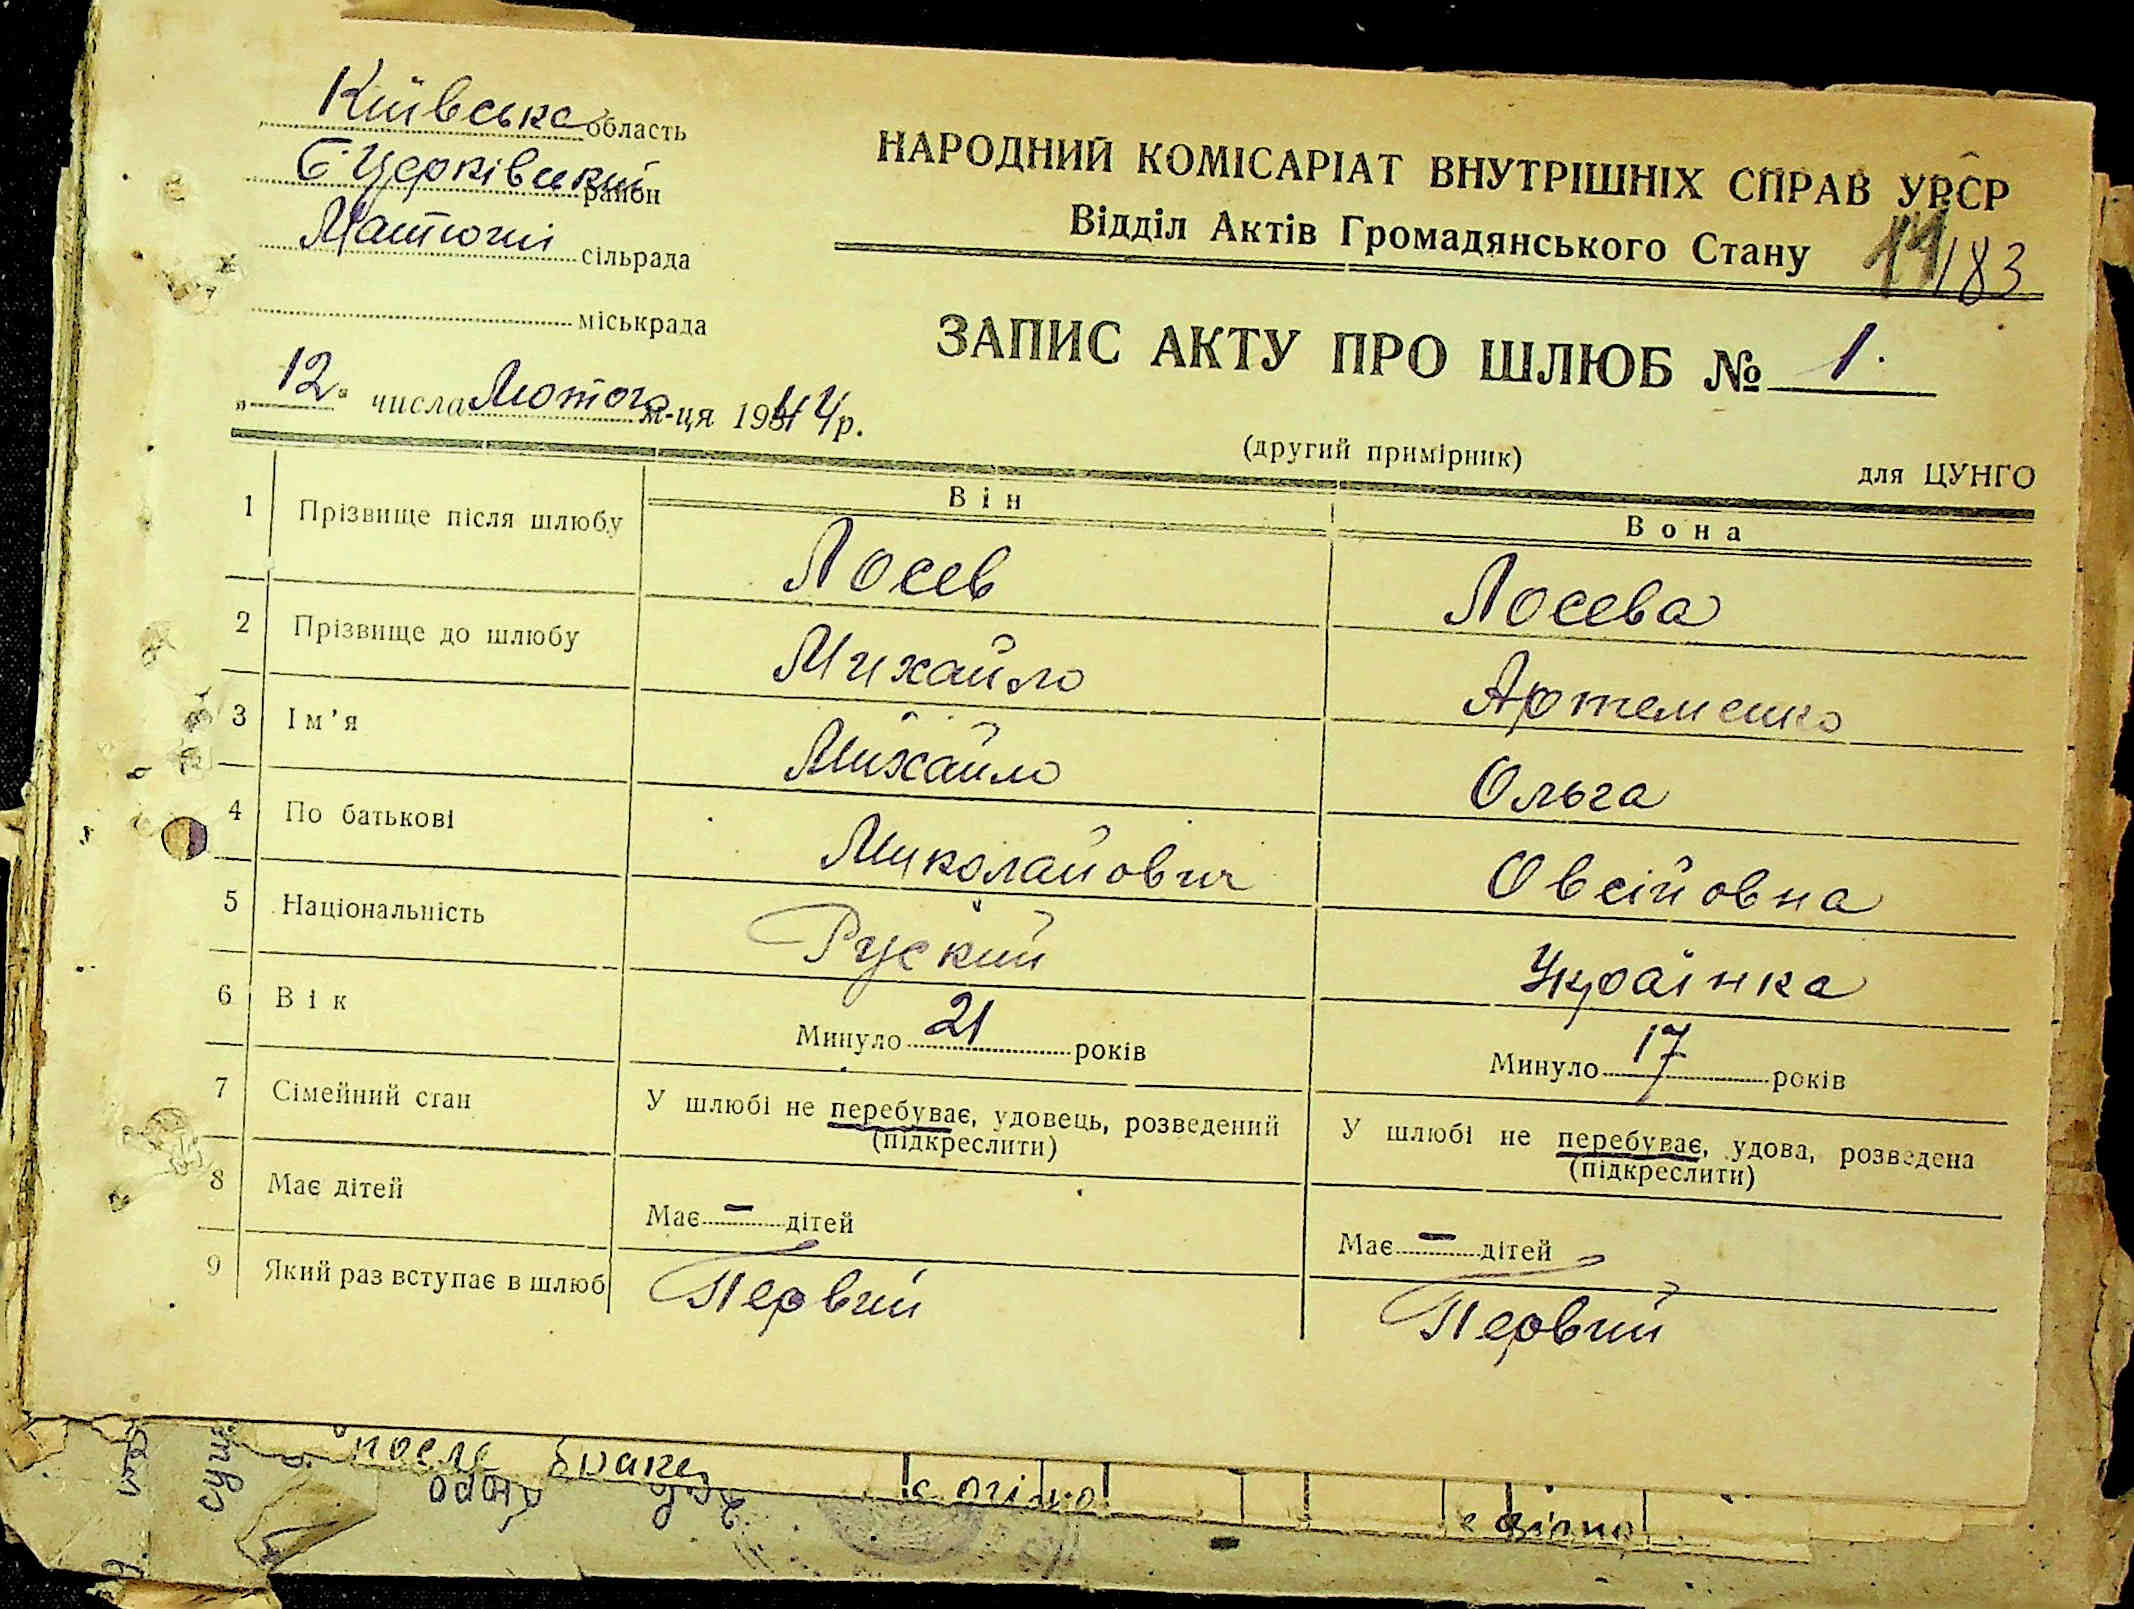 Київська область
Б Церківський район
Матюші сільрада
міськрада
НАРОДНИЙ КОМІСАРІАТ ВНУТРІШНІХ СПРАВ УРСР
Відділ Актів Громадянського Стану
11/83
ЗАПИС АКТУ ПРО ШЛЮБ № 1.
„12" числа Лютого м-ця 1944р.
(другий примірник) для ЦУНГО
Він Вона
1 Прізвище після шлюбу Лосев Лосева
2 Прізвище до шлюбу Михайло Артеменко
3 Ім'я Михайло Ольга
4 По батькові Миколайович Овсійовна
5 Національність Руский Українка
6 Вік Минуло 21 років Минуло 17 років
7 Сімейний стан У шлюбі не перебуває, удовець, розведений У шлюбі не перебуває, удова, розведена
(підкреслити) (підкреслити)
8 Має дітей Має – дітей Має – дітей
9 Який раз вступає в шлюб Первий Первий
после брака